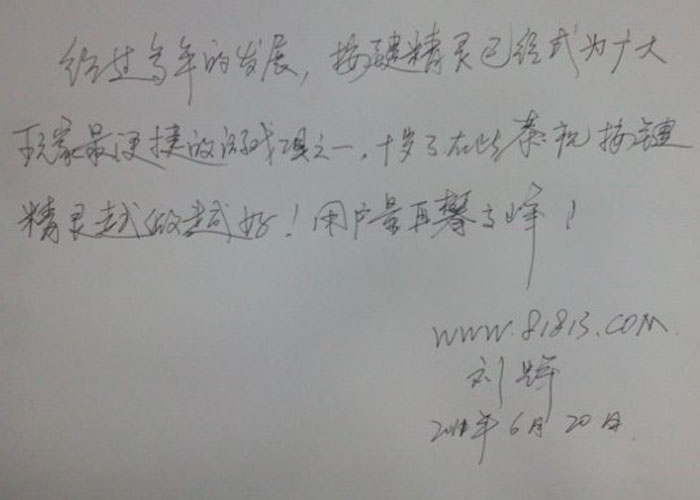 经过多年的发展,按键精灵已经成为广大
玩家最便捷的游戏工具之一,十岁了在此恭祝按键
精灵越做越好!用户量再攀高峰!
www.81813.COM
刘辉
6月20日